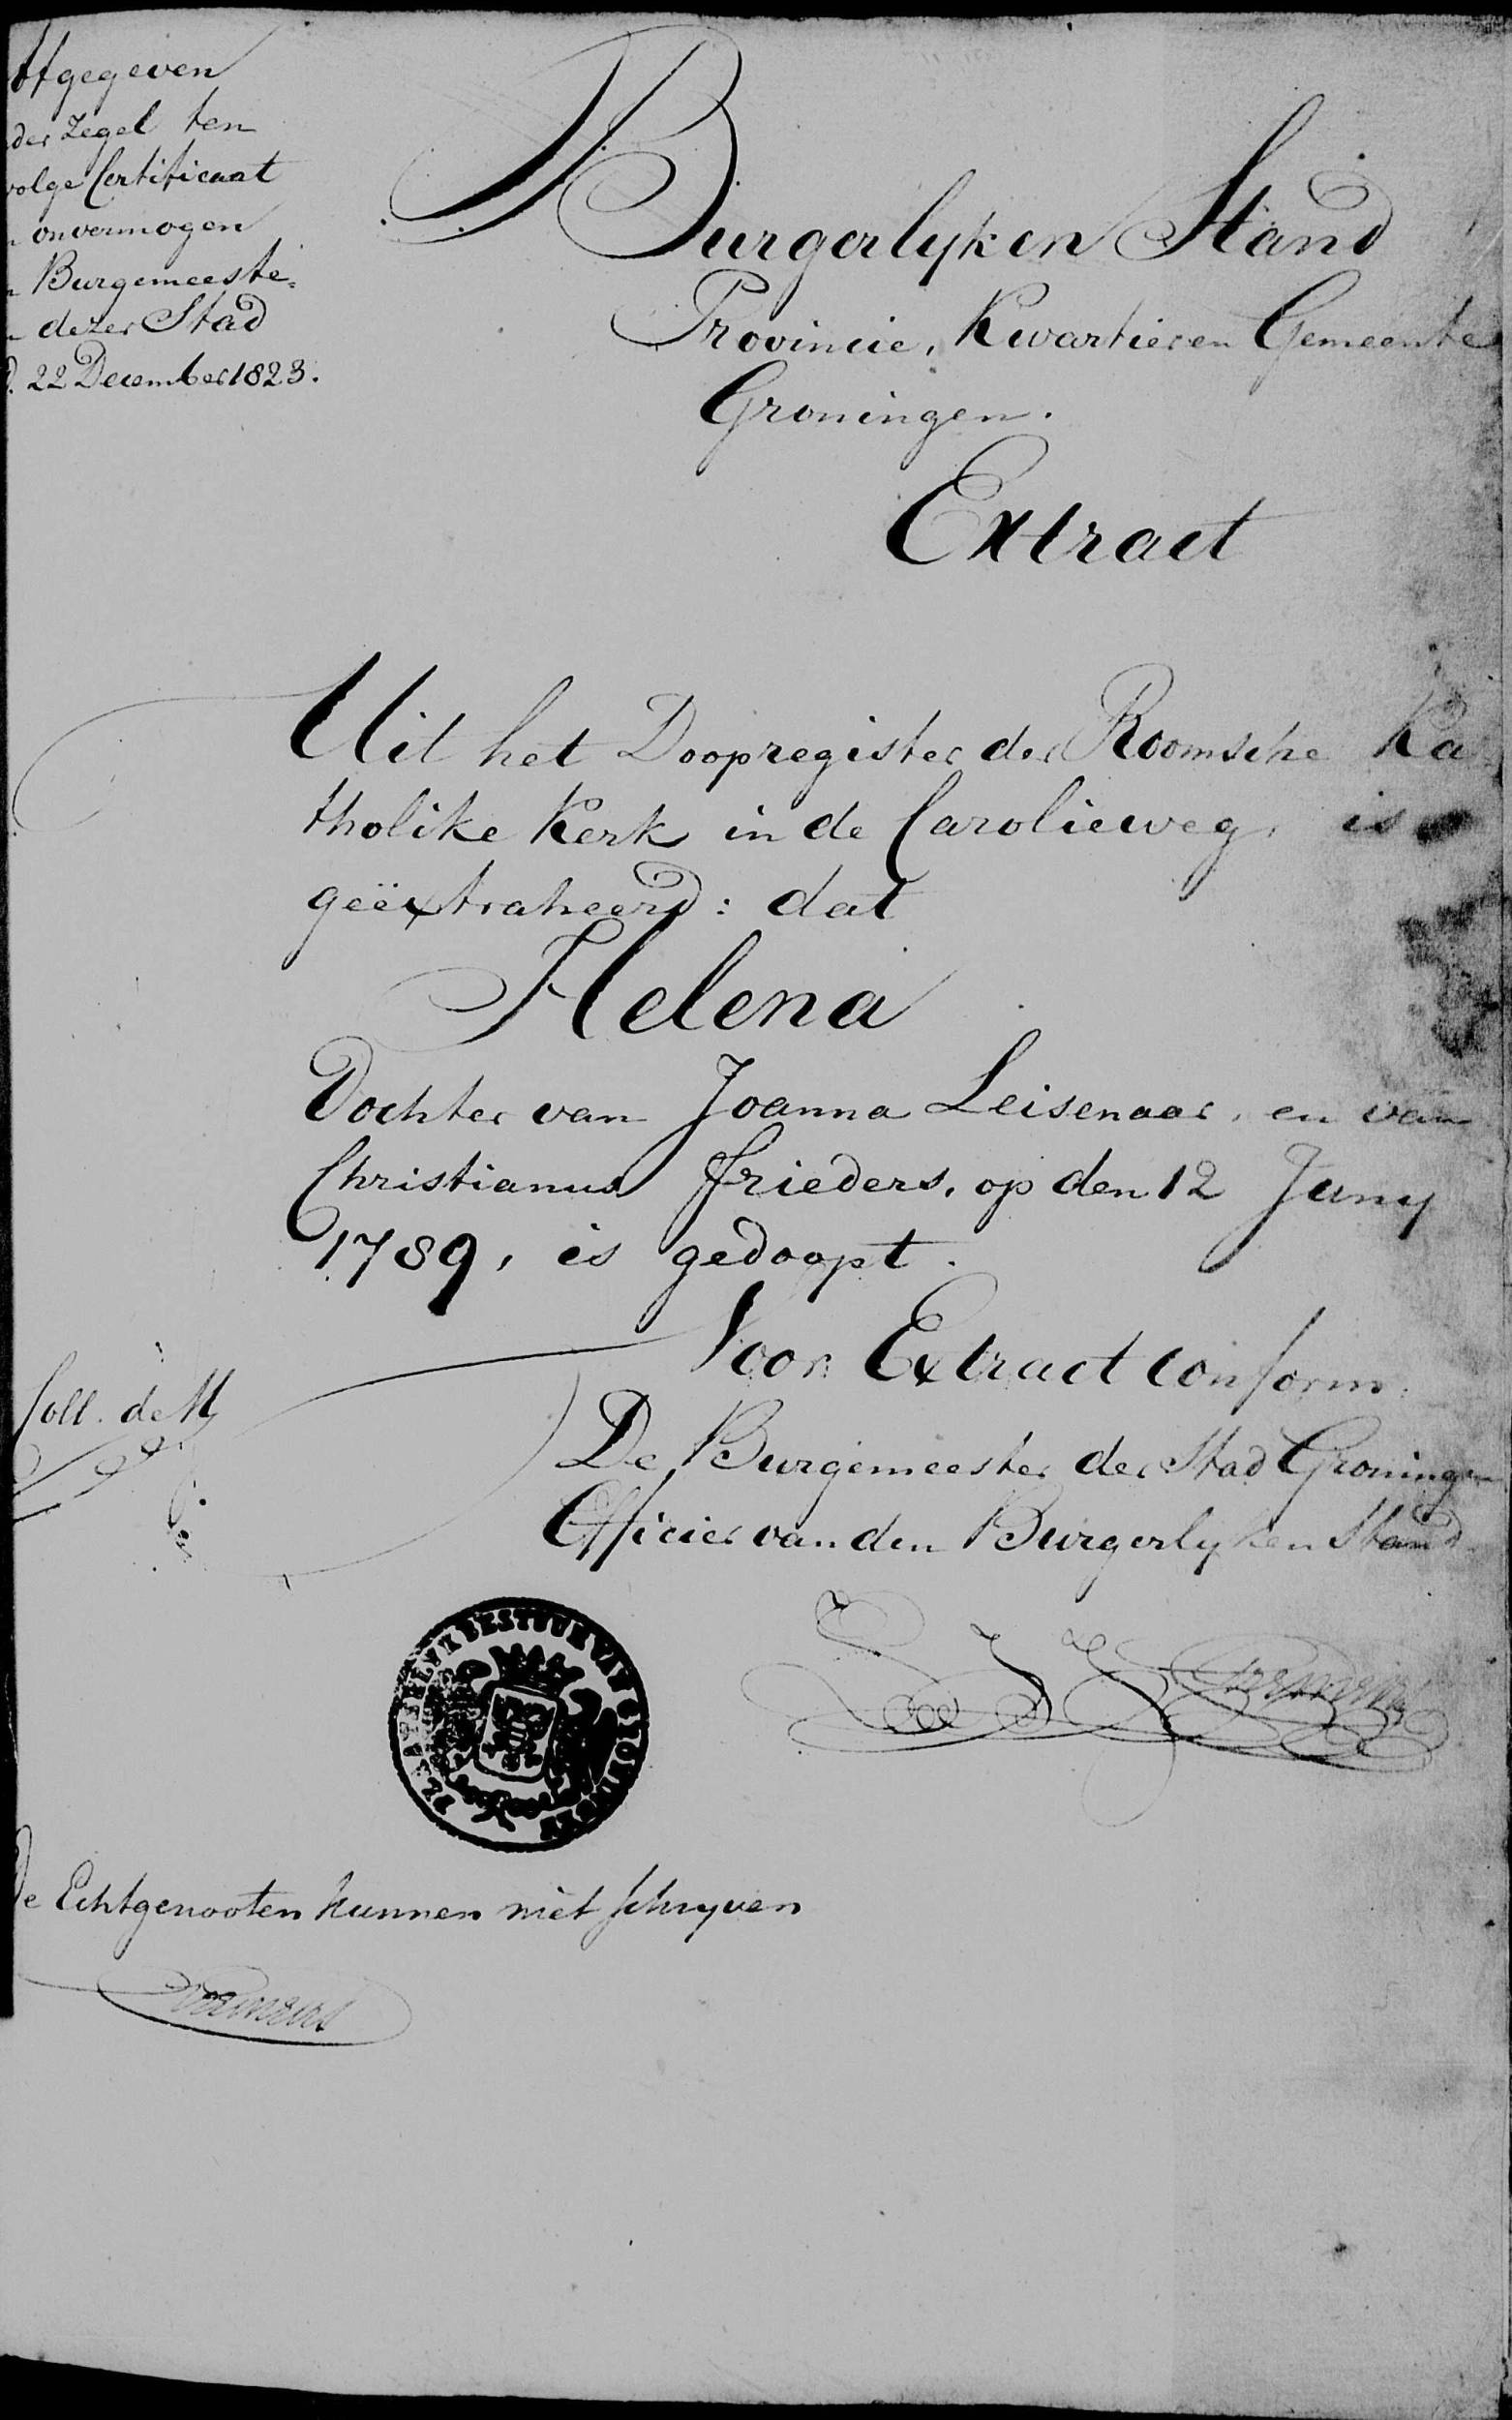 Afgegeven
der Zegel ten
volge Certificaat
n onvermogen
n Burgemeeste=
n dezer Stad
d. 22 December 1823.
Burgerlyken Stand
Provincie, Kwartier en Gemeente
Groningen.
Extract
Uit het Doopregister der Roomsche Ka
tholike Kerk in de Carolieweg, is
geëxtraheerd: dat
Helena
Dochter van Joanna Leisenaar, en van
Christianus Frieders, op den 12 Juny
1789, is gedoopt.
Voor Extract conform.
Coll.
De Burgemeester der Stad Groningen
Officier van den Burgerlyken Stand
BESTUUR VAN GRONINGEN
De Echtgenooten kunnen niet schryven